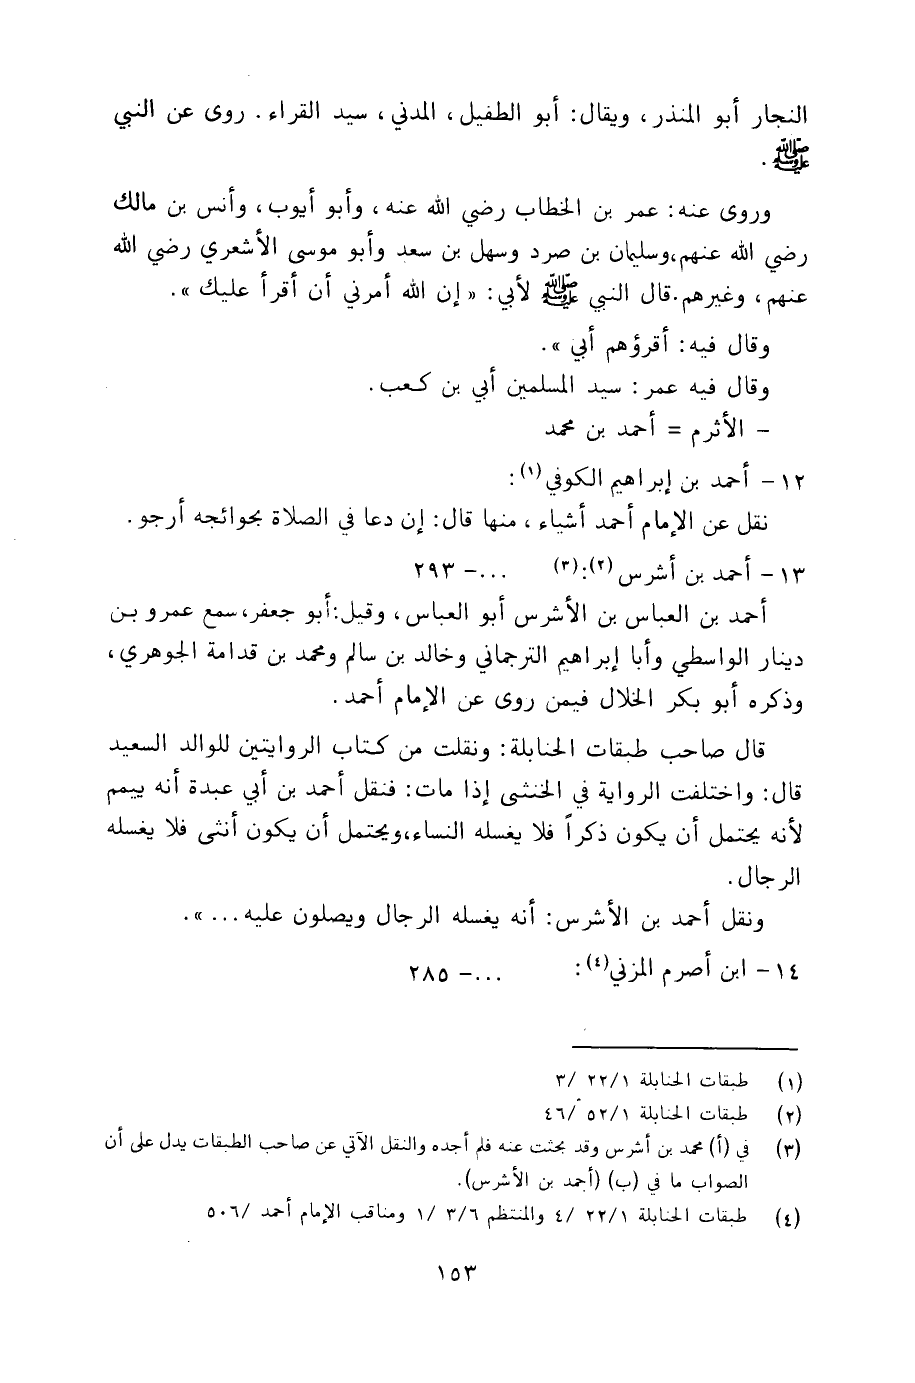 النجار أبو المنذر، ويقال: أبو الطفيل، المدني، سيد القراء. روى عن النبي
ﷺ.
وروى عنه: عمر بن الخطاب رضي الله عنه، وأبو أيوب، وأنس بن مالك
رضي الله عنهم،وسليمان بن صرد وسهل بن سعد وأبو موسى الأشعري رضي الله
عنهم، وغيرهم.قال النبي ﷺ لأبي: « إن الله أمرني أن أقرأ عليك ».
وقال فيه: أقرؤهم أبي ».
وقال فيه عمر: سيد المسلمين أبي بن كعب.
- الأثرم = أحمد بن محمد
١٢ - أحمد بن إبراهيم الكوفي(١):
نقل عن الإمام أحمد أشياء، منها قال: إن دعا في الصلاة بحوائجه أرجو.
١٣ - أحمد بن أشرس (٢):(٣) ...- ٢٩٣
أحمد بن العباس بن الأشرس أبو العباس، وقيل:أبو جعفر،سمع عمرو بن
دينار الواسطي وأبا إبراهيم الترجماني وخالد بن سالم ومحمد بن قدامة الجوهري،
وذكره أبو بكر الخلال فيمن روى عن الإمام أحمد.
قال صاحب طبقات الحنابلة: ونقلت من كتاب الروايتين للوالد السعيد
قال: واختلفت الرواية في الخنثى إذا مات: فنقل أحمد بن أبي عبدة أنه ييمم
لأنه يحتمل أن يكون ذكراً فلا يغسله النساء،ويحتمل أن يكون أنثى فلا يغسله
الرجال.
ونقل أحمد بن الأشرس: أنه يغسله الرجال ويصلون عليه... ».
١٤ - ابن أصرم المزني(٤): ...- ٢٨٥
(١) طبقات الحنابلة ٢٢/١ /٣
(٢) طبقات الحنابلة ٥٢/١ /٤٦
(٣) في (أ) محمد بن أشرس وقد بحثت عنه فلم أجده والنقل الآتي عن صاحب الطبقات يدل على أن
الصواب ما في (ب) (أحمد بن الأشرس).
(٤) طبقات الحنابلة ٢٢/١ /٤ والمنتظم ٣/٦ /١ ومناقب الإمام أحمد /٥٠٦
١٥٣